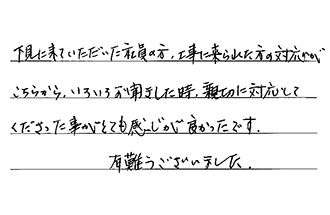 下見に来ていただいた社員の方、工事に来られた方の対応が
こちらから、いろいろお聞きした時、親切に対応して
くださった事がとても感じが良かったです.
有難うございました.